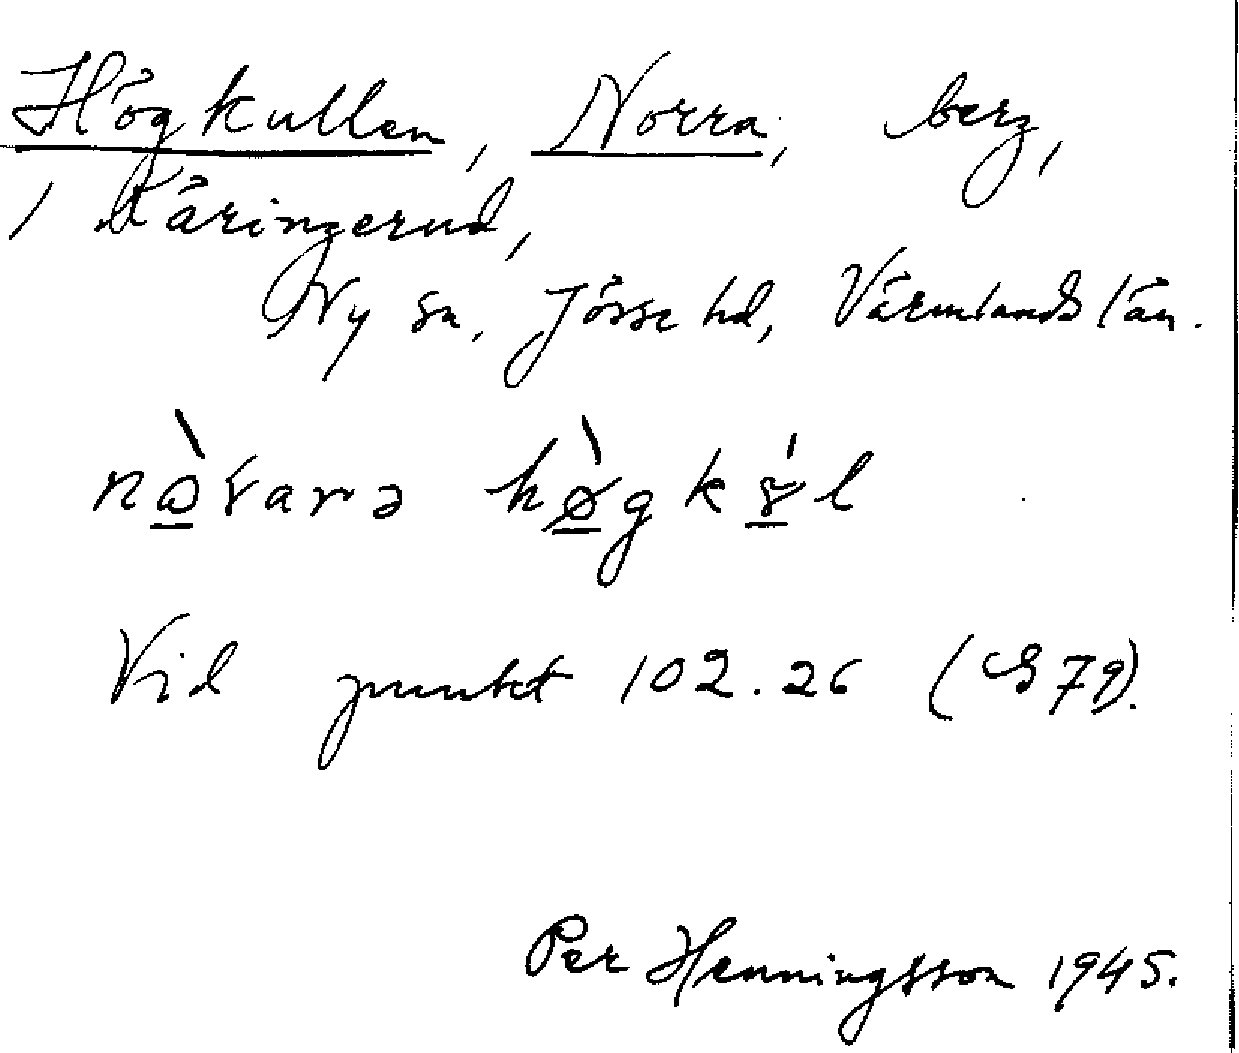 Högkullen, Norra, berg,
i Käringerud,
Ny sn, Jösse hd, Värmlands län.
Vid punkt 102.26 (S 79).
Per Henningsson 1945.